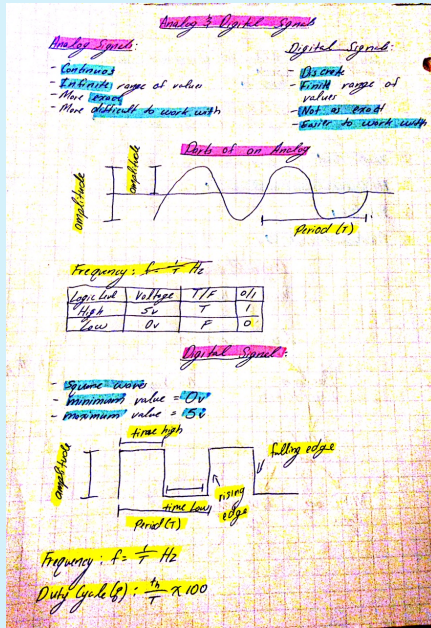 Analog & Digital Signals
Analog Signals:
- Continuos
- Infinite range of values
- More exact
- More difficult to work with
Digital Signals:
- Discrete
- Finite range of
values
- Not as exact
- Easier to work with
Parts of an Analog
amplitude
amplitude
Period (T)
Frequency: f = 1/T Hz
Logic Level Voltage T/F 0/1
High 5v T 1
Low 0v F 0
Digital Signal:
- Square waves
- minimum value = 0v
- maximum value = 5v
time high
amplitude
falling edge
rising
edge
time low
Period (T)
Frequency: f = 1/T Hz
Duty Cycle : th/T x 100